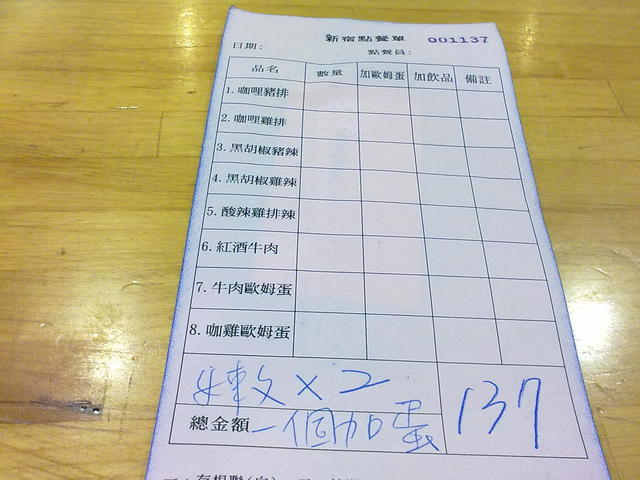 新宿點餐單 001137
日期： 點餐員：
品名 數量 加歐姆蛋 加飲品 備註
1.咖哩豬排
2.咖哩雞排
3.黑胡椒豬辣
4.黑胡椒雞辣
5.酸辣雞排辣
6.紅酒牛肉
7.牛肉歐姆蛋
8.咖雞歐姆蛋
×2 137
總金額 一個加蛋